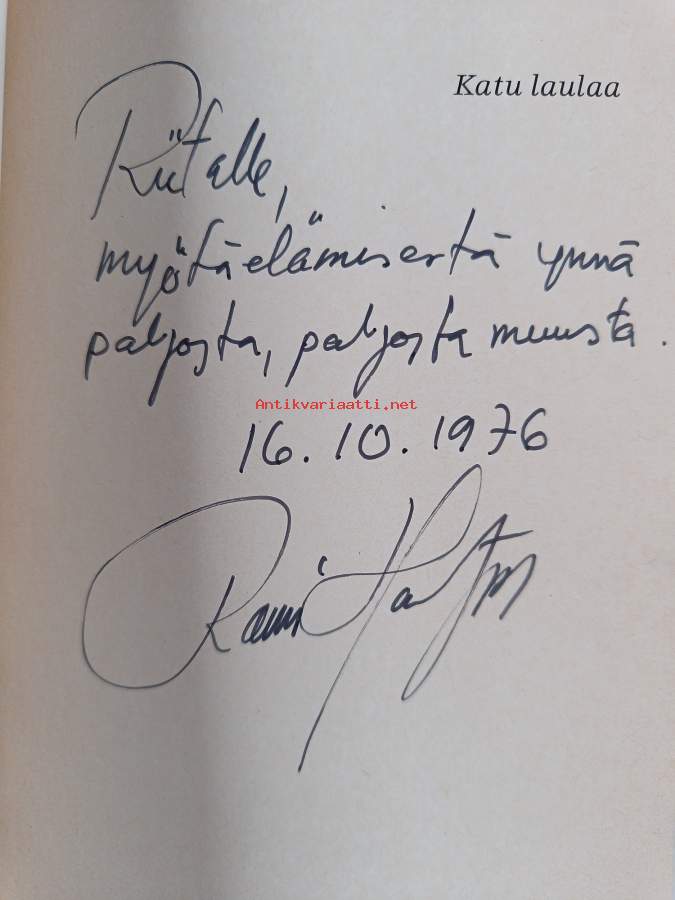 Katu laulaa
Riitalle,
myötäelämisestä ynnä
paljosta, paljosta muusta.
Antikvariaatti.net
16.10.1976
Rauni